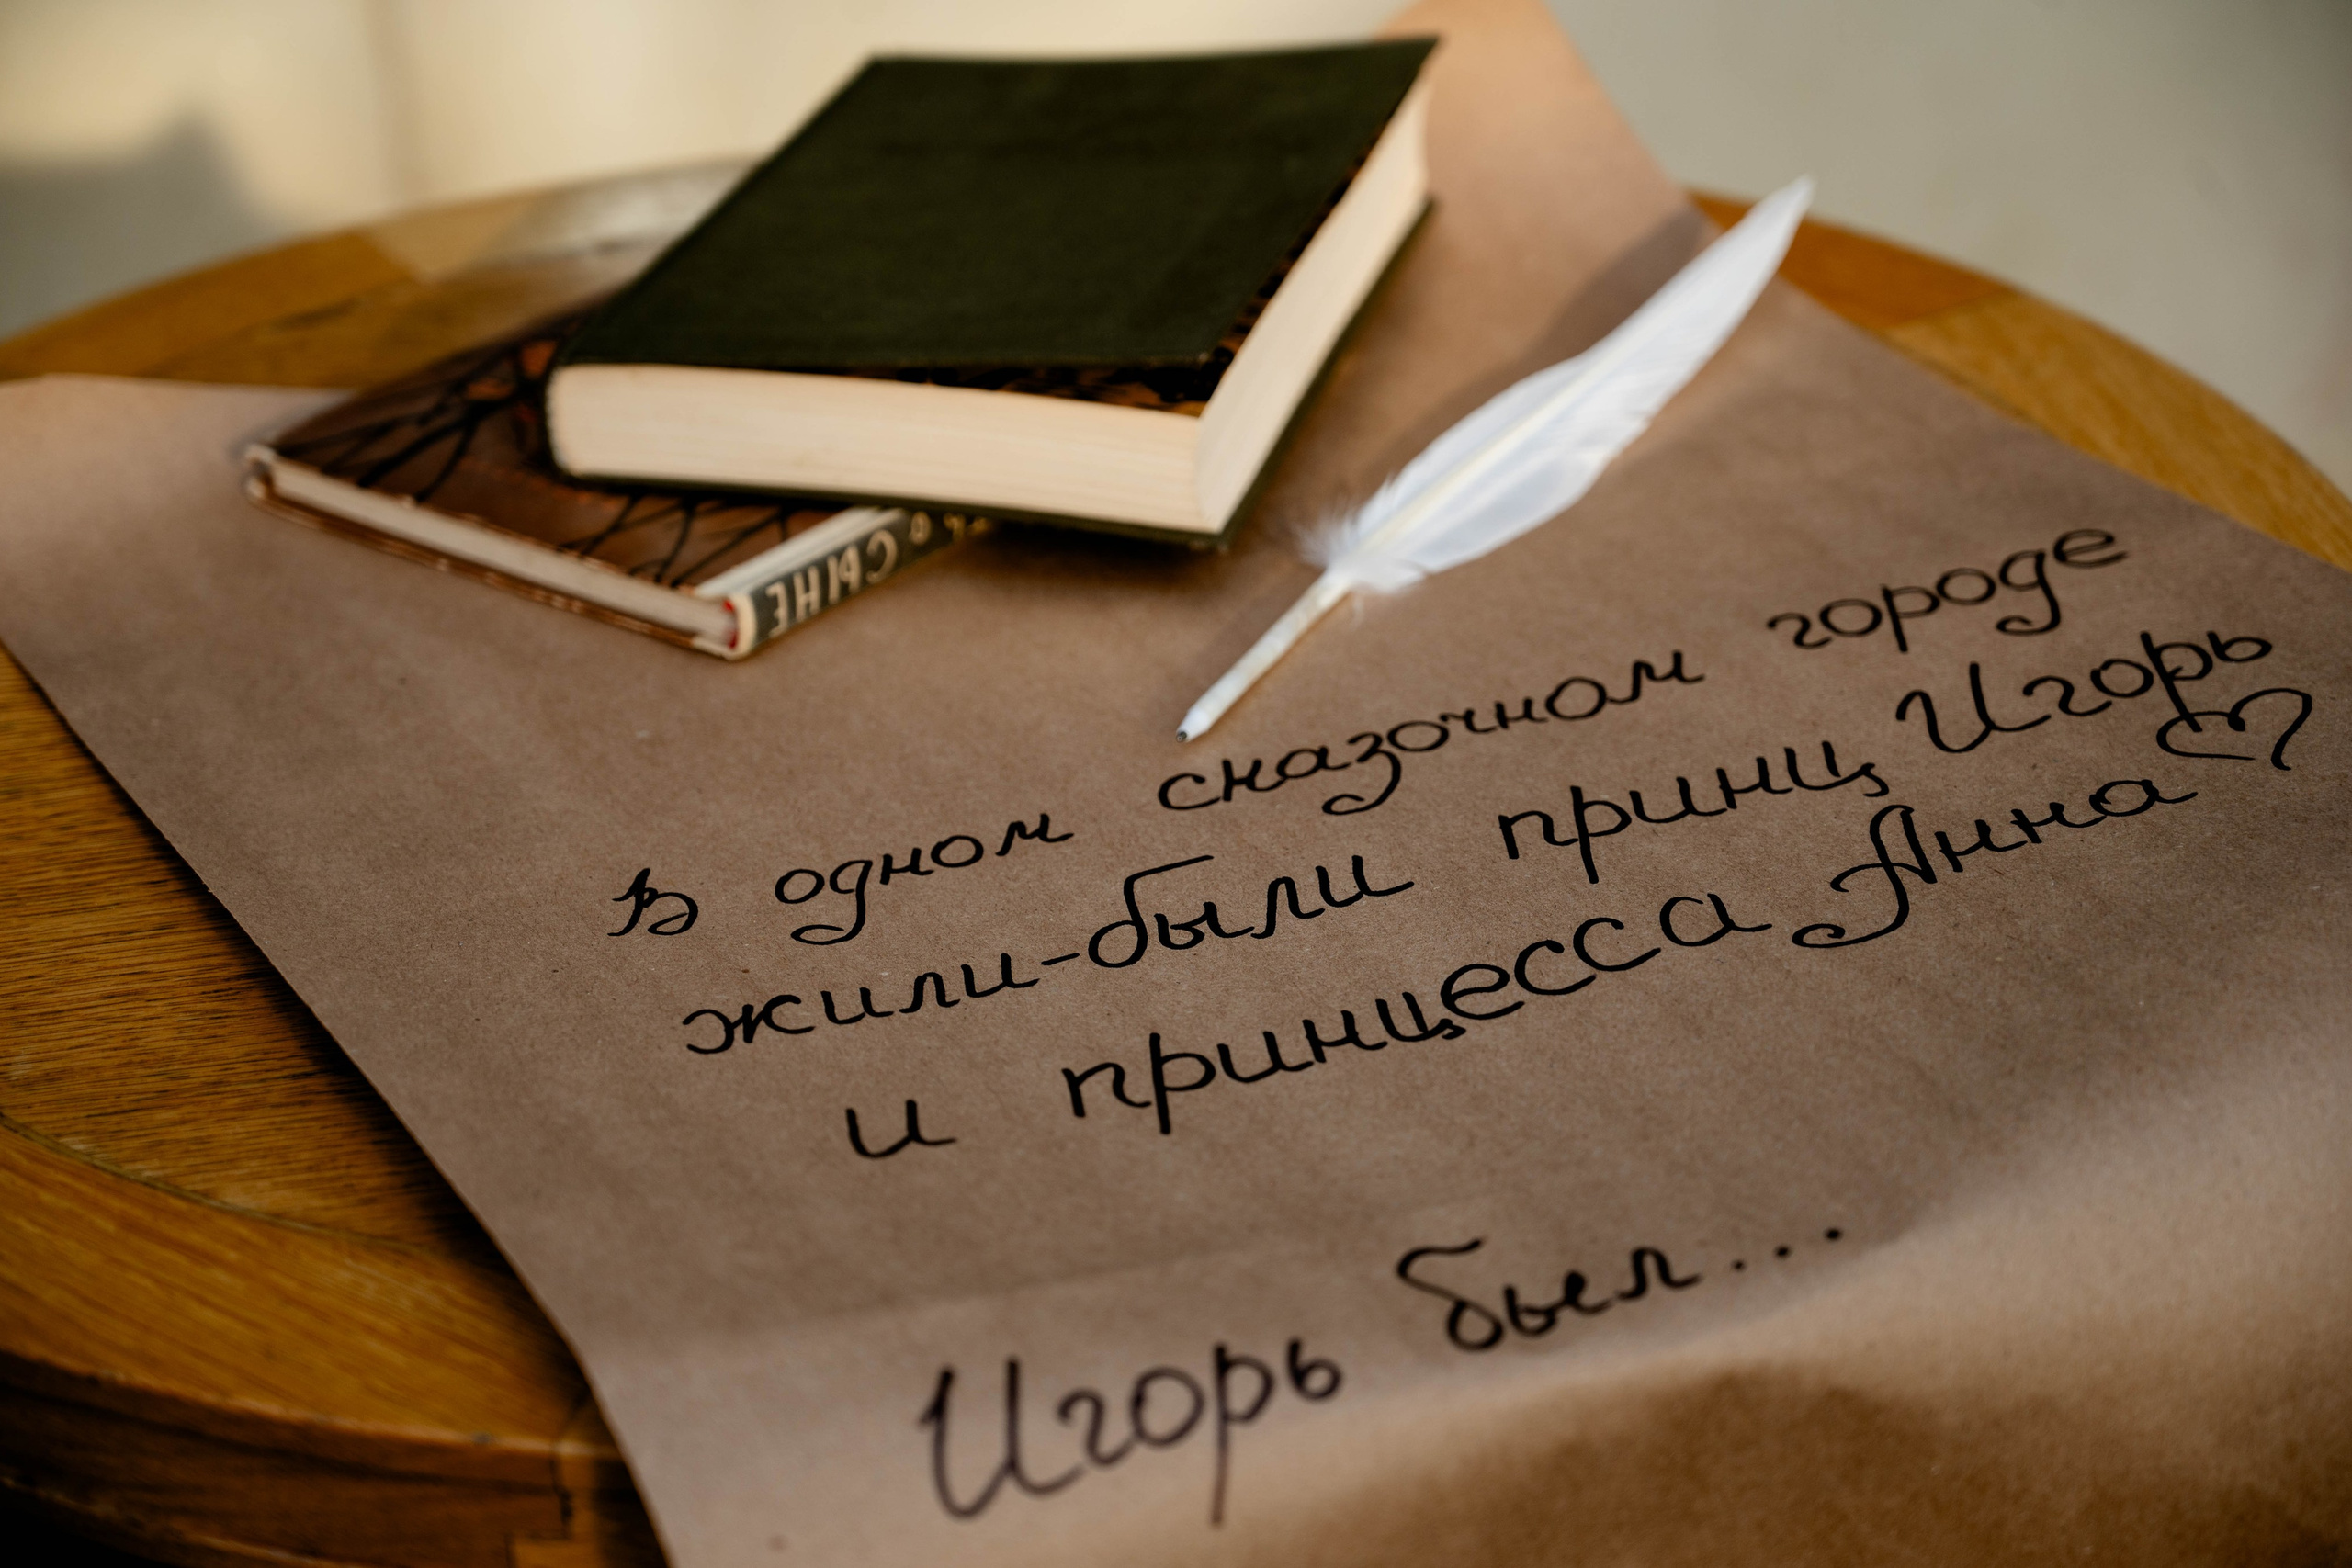 о СЫНЕ
В одном сказочном городе
жили-были принц Игорь
и принцесса Анна
Игорь был...